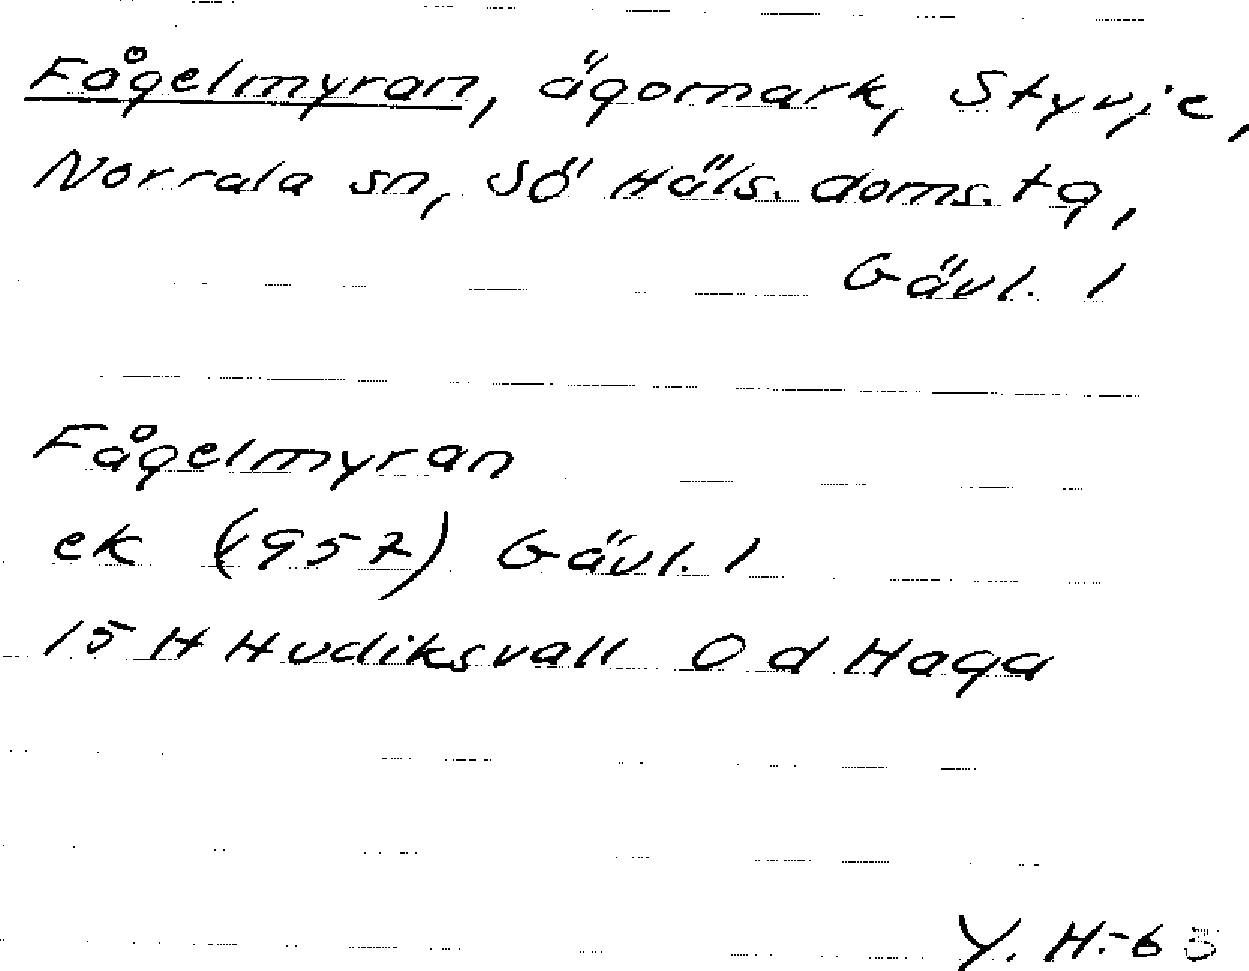 Fågelmyran, ägomark, Styvje,
Norrala sn, Sö Häls. doms. tg,
Gävl. l
Fågelmyran
ek (1957) Gävl. l
15 H Hudiksvall 0 d Haga
Y. H.-65